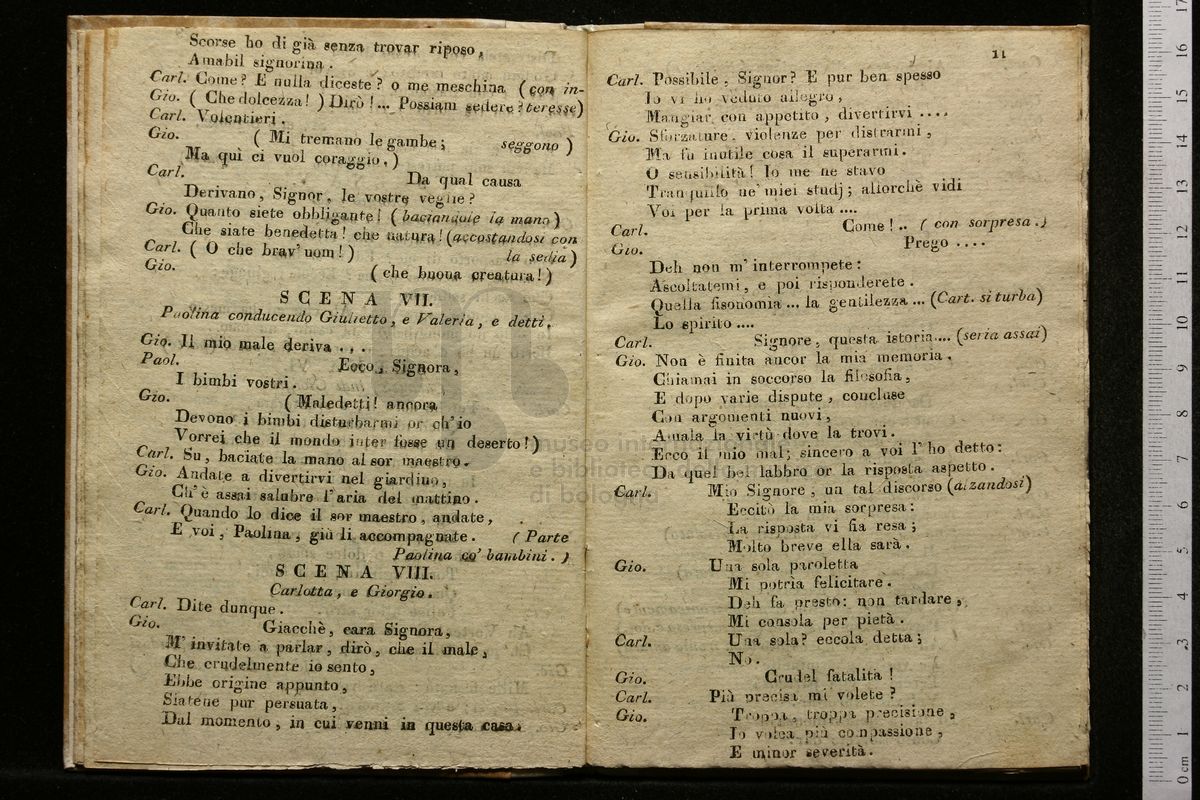 Scorse ho di già senza trovar riposo,
Amabil signorina.
Carl. Come? E nulla diceste? o me meschina (con in-
Gio. (Che dolcezza!) Dirò!... Possiam sedere? teresse)
Carl. Volentieri.
Gio. (Mi tremano le gambe; seggono)
Ma quì ci vuol coraggio.)
Carl. Da qual causa
Derivano, Signor, le vostre veglie?
Gio. Quanto siete obbligante! (baciandole la mano)
Che siate benedetta! che natura! (accostandosi con
Carl. (O che brav' uom!) la sedia)
Gio. (che buona creatura!)
SCENA VII.
Paolina conducendo Giulietto, e Valeria, e detti.
Gio. Il mio male deriva ...
Paol. Ecco, Signora,
I bimbi vostri.
Gio. (Maledetti! ancora
Devono i bimbi disturbarmi or ch'io
Vorrei che il mondo inter fosse un deserto!)
Carl. Su, baciate la mano al sor maestro.
Gio. Andate a divertirvi nel giardino,
Ch' è assai salubre l'aria del mattino.
Carl. Quando lo dice il sor maestro, andate,
E voi, Paolina, giù li accompagnate. (Parte
Paolina co' bambini.)
SCENA VIII.
Carlotta, e Giorgio.
Carl. Dite dunque.
Gio. Giacchè, cara Signora,
M' invitate a parlar, dirò, che il male,
Che crudelmente io sento,
Ebbe origine appunto,
Siatene pur persuata,
Dal momento, in cui venni in questa casa.
11
Carl. Possibile, Signor? E pur ben spesso
Io vi ho veduto allegro,
Mangiar con appetito, divertirvi ....
Gio. Sforzature, violenze per distrarmi,
Ma fu inutile cosa il superarmi.
O sensibilità! Io me ne stavo
Tranquillo ne' miei studj; allorchè vidi
Voi per la prima volta ....
Carl. Come! .. (con sorpresa.)
Gio. Prego ....
Deh non m' interrompete:
Ascoltatemi, e poi risponderete.
Quella fisonomia ... la gentilezza ... (Carl. si turba)
Lo spirito ....
Carl. Signore, questa istoria.... (seria assai)
Gio. Non è finita ancor la mia memoria.
Chiamai in soccorso la filosofia,
E dopo varie dispute, concluse
Con argomenti nuovi,
Amala la virtù dove la trovi.
Ecco il mio mal; sincero a voi l' ho detto:
Da quel bel labbro or la risposta aspetto.
Carl. Mio Signore, un tal discorso (alzandosi)
Eccitò la mia sorpresa:
La risposta vi fia resa;
Molto breve ella sarà.
Gio. Una sola paroletta
Mi potria felicitare.
Deh fa presto: non tardare,
Mi consola per pietà.
Carl. Una sola? eccola detta;
No.
Gio. Crudel fatalità!
Carl. Più precisa mi volete?
Gio. Troppa, troppa precisione,
Io volea più compassione,
E minor severità.
museo internazionale
e biblioteca della musica
di bologna
0 cm 1 2 3 4 5 6 7 8 9 10 11 12 13 14 15 16 17